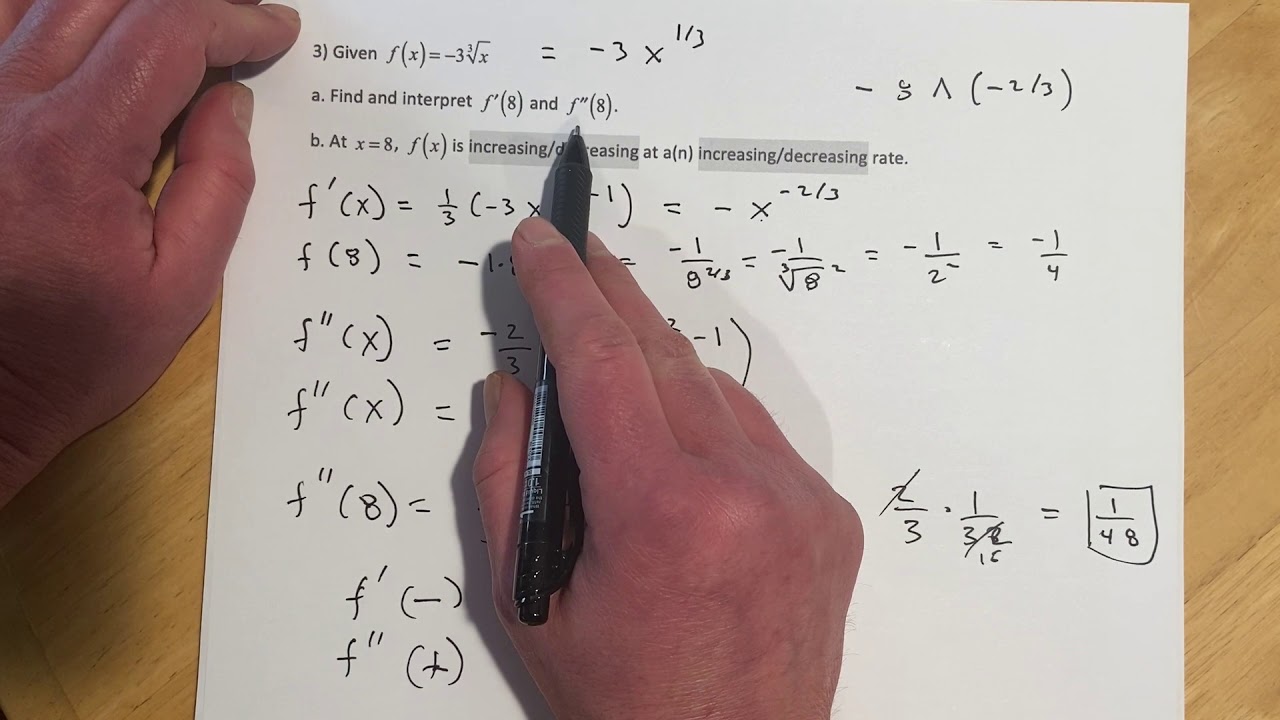 3) Given f(x)=-3∛x = -3 x^1/3
- 8 ^ (-2/3)
a. Find and interpret f'(8) and f''(8).
b. At x=8, f(x) is increasing/d reasing at a(n) increasing/decreasing rate.
f'(x) = 1/3 (-3 x -1) = - x^-2/3
f(8) = -1· = -1/8^2/3 = -1/∛8^2 = -1/2^2 = -1/4
f''(x) = -2/3 2 -1)
f''(x) =
f''(8) = 2/3 · 1/32 16 = 1/48
f' (-)
f'' (+)